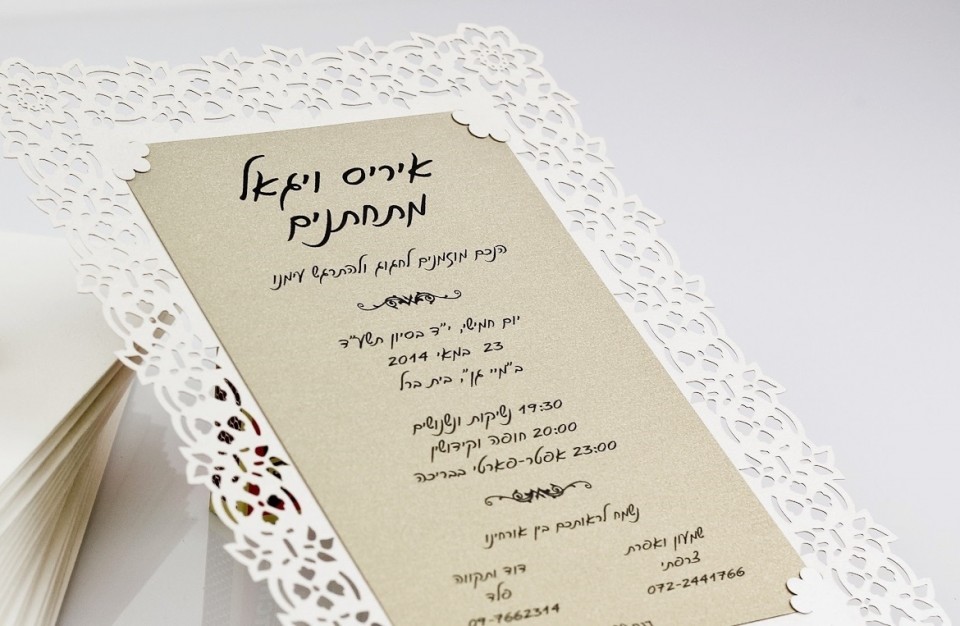 איריס ויגאל
מתחתנים
הנכם מוזמנים לחגוג ולהתרגש עימנו
יום חמישי, י"ד בסיון תשע"ד
23 במאי 2014
ב"מיי גן", בית ברל
19:30 נשיקות ונשנושים
20:00 חופה וקידושין
23:00 אפטר-פארטי בבריכה
נשמח לראותכם בין אורחינו
שמעון ואפרת
צרפתי
072-2441766
דוד ותקווה
פלד
09-7662314